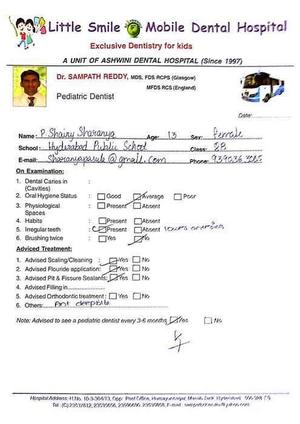 Little Smile Mobile Dental Hospital
Exclusive Dentistry for kids
A UNIT OF ASHWINI DENTAL HOSPITAL (Since 1997)
Dr. SAMPATH REDDY, MDS, FDS RCPS (Glasgow)
MFDS RCS (England)
Pediatric Dentist
Date:
Name: P. Shairy Sharanya Age: 13 Sex: Female
School: Hyderabad Public School Class: 8B
E-mail: @gmail.com Phone:
On Examination:
1. Dental Caries in :
(Cavities)
2. Oral Hygiene Status : Good Average Poor
3. Physiological : Present Absent
Spaces
4. Habits : Present Absent
5. Irregular teeth : Present Absent
6. Brushing twice : Yes No
Adviced Treatment:
1. Advised Scaling/Cleaning : Yes No
2. Advised Flouride application: Yes No
3. Advised Pit & Fissure Sealants: Yes No
4. Advised Filling in
5. Advised Orthodontic treatment : Yes No
6. Others:
Note: Advised to see a pediatric dentist every 3-6 months Yes No
Hospital Address: H.No.